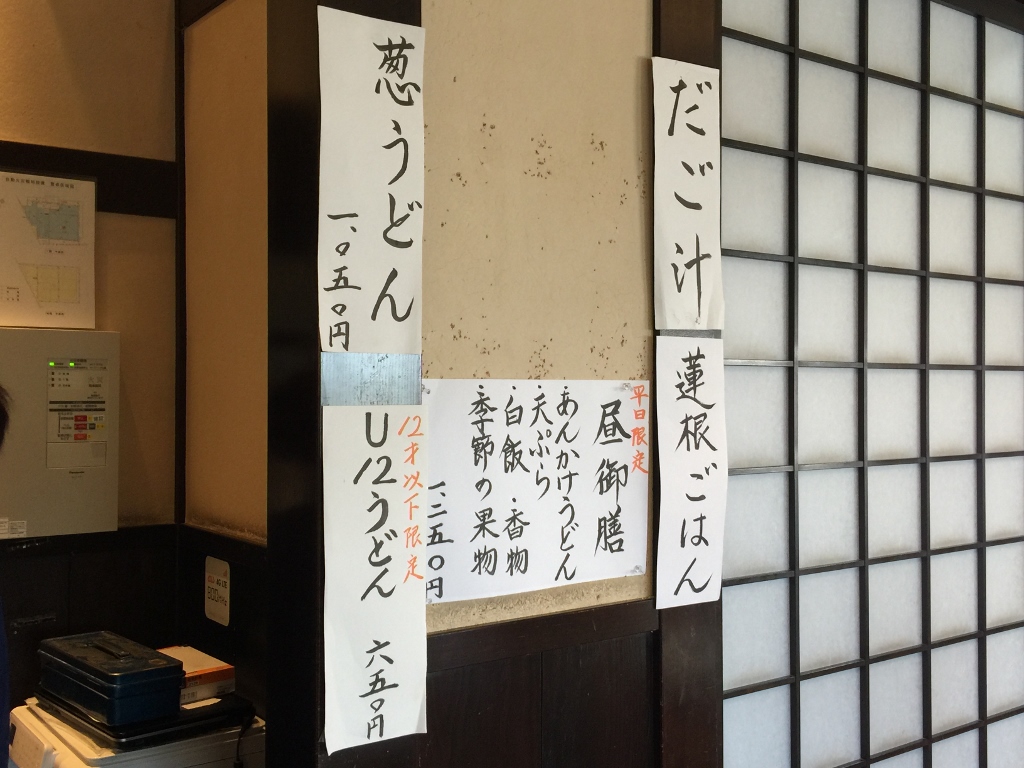 だご汁
蓮根ごはん
平日限定
昼御膳
あんかけうどん
天ぷら
白飯・香物
季節の果物
一、二五〇円
葱うどん
一、〇五〇円
12才以下限定
U12うどん
六五〇円